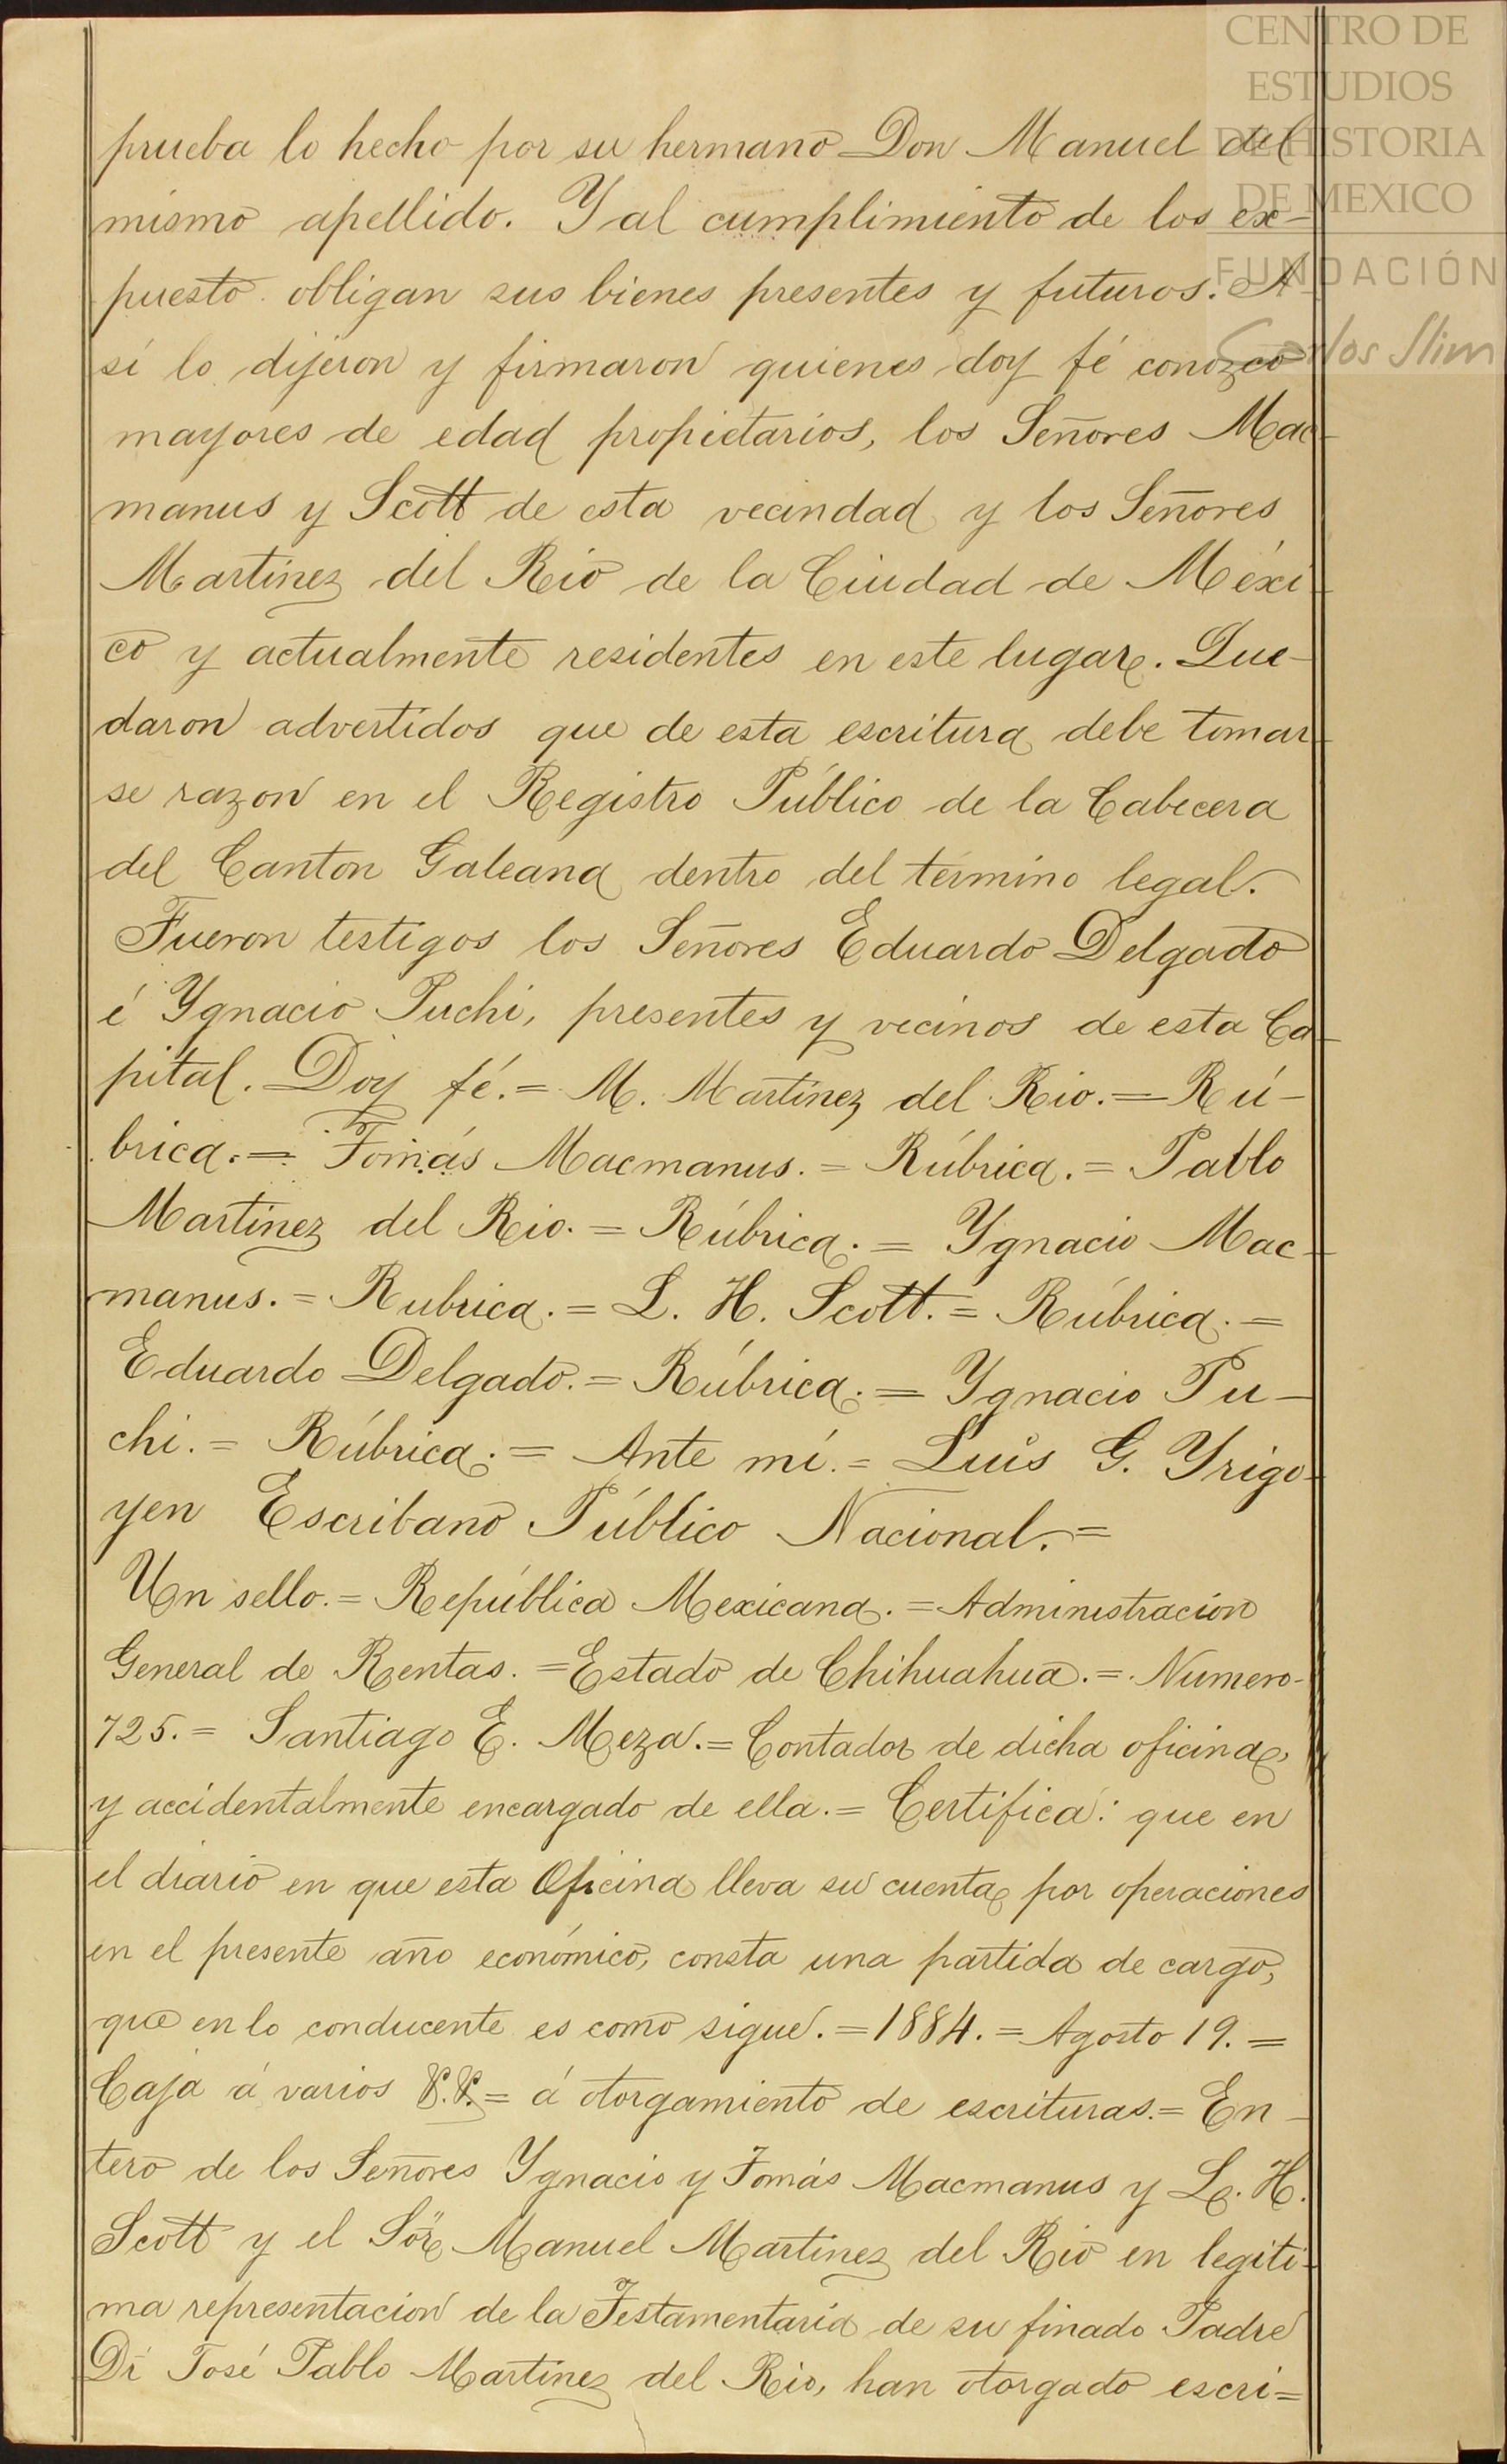 CENTRO DE
ESTUDIOS
DE HISTORIA
DE MEXICO
FUNDACIÓN
Carlos Slim
prueba lo hecho por su hermano Don Manuel del
mismo apellido. Y al cumplimiento de los ex-
puesto obligan sus bienes presentes y futuros. A
sí lo dijeron y firmaron quienes doy fé conozco
mayores de edad propietarios, los Señores Mac-
manus y Scott de esta vecindad y los Señores
Martinez del Rio de la Ciudad de Méxi-
co y actualmente residentes en este lugar. Que-
daron advertidos que de esta escritura debe tomar-
se razon en el Registro Público de la Cabecera
del Canton Galeana dentro del término legal.
Fueron testigos los Señores Eduardo Delgado
é Ygnacio Puchi, presentes y vecinos de esta Ca-
pital. Doy fé.= M. Martinez del Rio.= Rú-
brica.= Tomás Macmanus.= Rúbrica.= Pablo
Martinez del Rio.= Rúbrica.= Ygnacio Mac-
manus.= Rubrica.= L. H. Scott.= Rúbrica.=
Eduardo Delgado.= Rúbrica.= Ygnacio Pu-
chi.= Rúbrica.= Ante mí.= Luis G. Yrigo-
yen Escribano Público Nacional.=
Un sello.= República Mexicana.= Administracion
General de Rentas.= Estado de Chihuahua.= Numero-
725.= Santiago E. Meza.= Contador de dicha oficina,
y accidentalmente encargado de ella.= Certifica: que en
el diario en que esta Oficina lleva su cuenta por operaciones
en el presente año económico, consta una partida de cargo,
que en lo conducente es como sigue.= 1884.= Agosto 19.=
Caja á varios = á otorgamiento de escrituras.= En-
tero de los Señores Ygnacio y Tomás Macmanus y L. H.
Scott y el Sör Manuel Martinez del Rio en legiti-
ma representacion de la Testamentaria de su finado Padre
José Pablo Martinez del Rio, han otorgado escri=